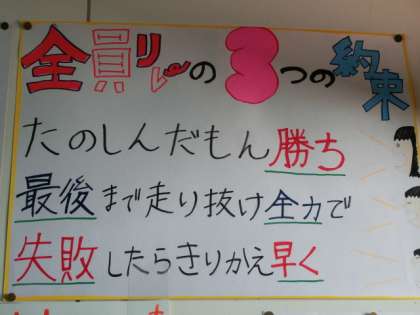 全員リレーの3つの約束
たのしんだもん勝ち
最後まで走り抜け全力で
失敗したらきりかえ早く